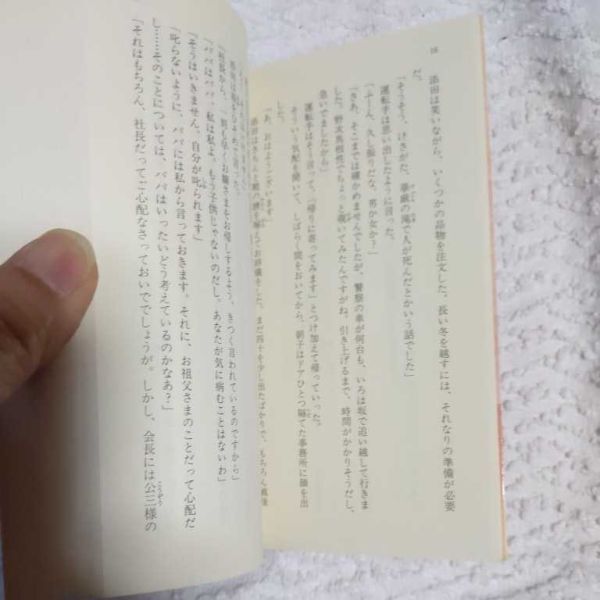 添田は笑いながら、いくつかの品物を注文した。長い冬を越すには、それなりの準備が必要
だ。
「そうそう、けさがた、華厳の滝で人が死んだとかいう話でした」
運転手は思い出したように言った。
「ふーん、久し振りだな、男か女か?」
「さあ、そこまでは確かめませんでしたが、警察の車が何台も、いろは坂で追い越して行きま
した。野次馬根性でちょっと覗いてみたんですがね、引き上げるまで、時間がかかりそうだし、
急いでましたから」
運転手はそう言って、「帰りに寄ってみます」とつけ加えて帰っていった。
そういう気配を聞いて、しばらく間をおいてから、朝子はドアひとつ隔てた事務所に顔を出
した。
「あ、おはようございます」
添田はきちんと お辞儀をした。まだ四十を少し出たばかりで、もちろん
「社長から、一刻も早くお嬢さまをお帰しするよう、きつく言われているのですから」
「パパはパパ、私は私よ。もう子供じゃないのだし、あなたが気に病むことはないわ」
「そうはいきません。自分が叱られます」
「叱らないように、パパには私から言っておきます。それに、お祖父さまのことだって心配だ
し……そのことについては、パパはいったいどう考えているのかなあ?」
「それはもちろん、社長だってご心配なさっておいででしょうが。しかし、会長には公三様の